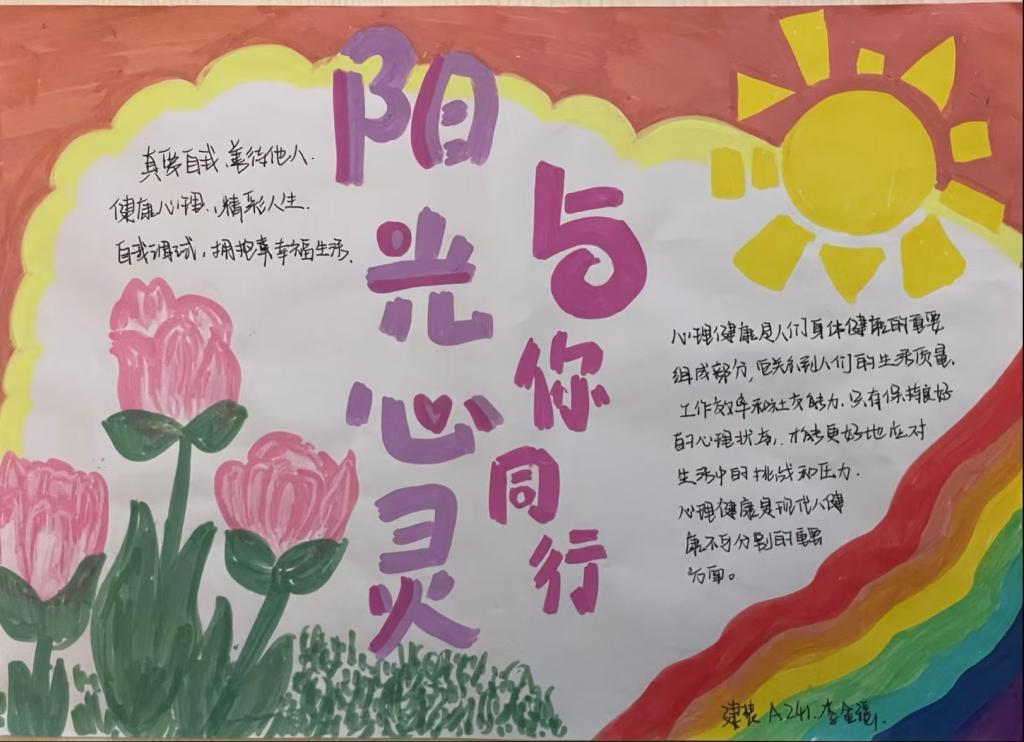 阳光心灵
与你同行
真爱自我、善待他人.
健康心理、精彩人生.
自我调试，拥抱幸福生活、
心理健康是人们身体健康的重要
组成部分，它关系到人们的生活质量、
工作效率和社交能力.只有保持良好
的心理状态，才能更好地应对
生活中的挑战和压力.
心理健康是现代人健
康不可分割的重要
方面。
建装A241.李金